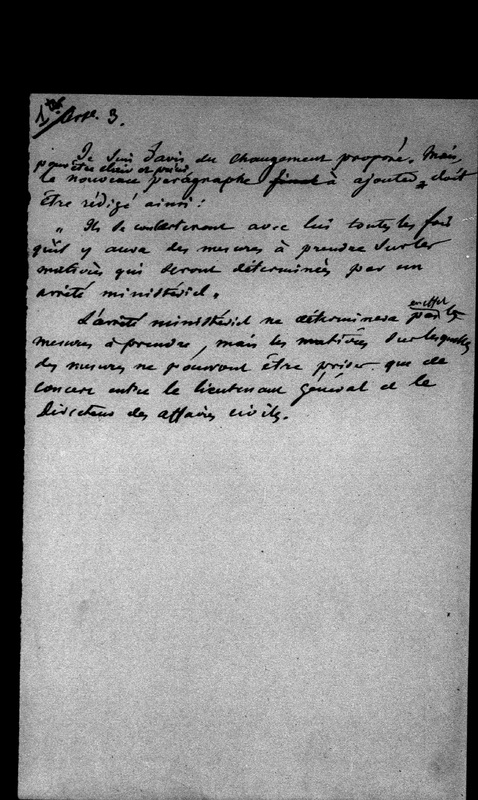 1er Art. 3.
Je suis d'avis du changement proposé. Mais,
pour être clair et précis
le nouveau paragraphe à ajouter doit
être rédigé ainsi :
" Ils se concerteront avec lui toutes les fois
qu'il y aura des mesures à prendre sur les
matières qui seront déterminées par un
arrêté ministériel.
en effet
L'arrêté ministériel ne déterminera pas les
mesures à prendre, mais les matières sur lesquelles
des mesures ne pourront être prises que de
concert entre le lieutenant général et le
Directeur des affaires civiles.